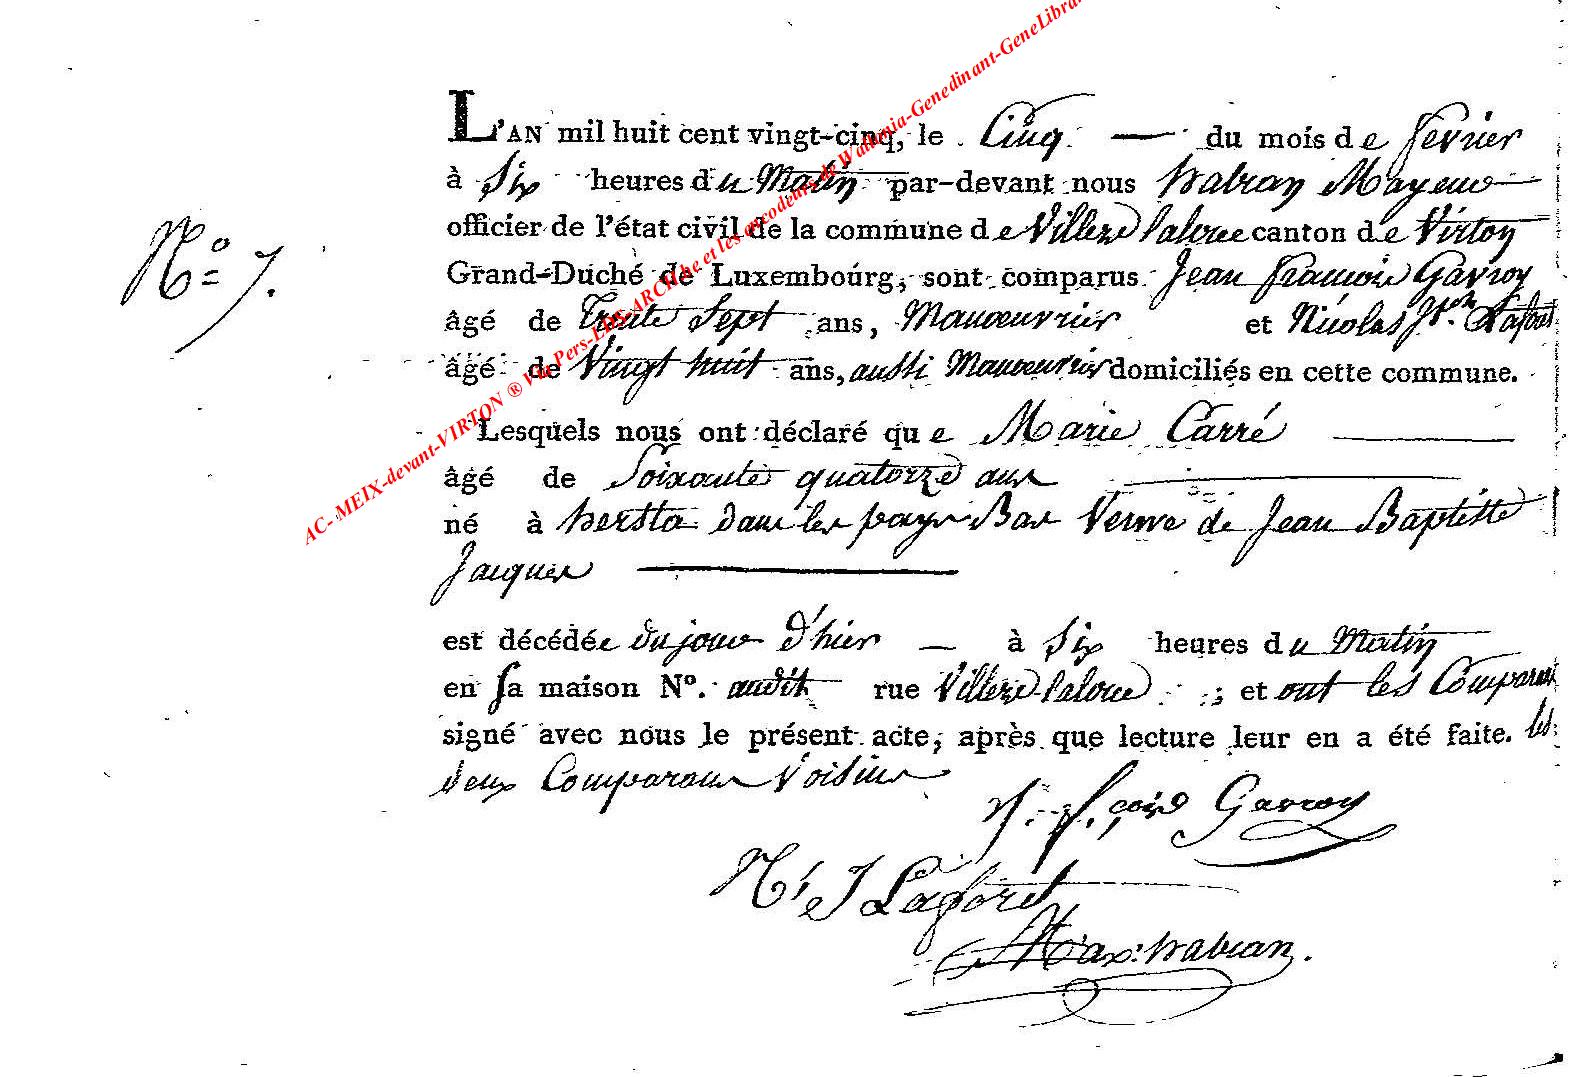 AC- MEIX-devant-VIRTON ® Via Pers-LDS-ARCHhe et les encodeurs de Wallonia-Genedinant-GeneLibra
L'AN mil huit cent vingt-cinq, le Cinq du mois de fevrier
à Six heures du Matin par-devant nous habran Mayeur
officier de l'état civil de la commune de Villers laloue canton de Virton
Grand-Duché de Luxembourg, sont comparus Jean francois Gavroy
âgé de Trente Sept ans, Manoeuvrier et Nicolas Jph Lafort
âgé de Vingt huit ans, aussi Manoeuvrier domiciliés en cette commune.
Nº 7.
Lesquels nous ont déclaré que Marie Carré
âgé de Soixante quatorze ans
né à hersta dans les pays Bas Veuve de Jean Baptiste
Jacques
est décédée du jour d'hier à Six heures du Matin
en sa maison Nº. audit rue Villers laloue ; et ont les Comparant
signé avec nous le présent acte, après que lecture leur en a été faite. les
deux Comparans Voisins
J. f.çois Gavroy
N.s J Laforet
Max: habran.